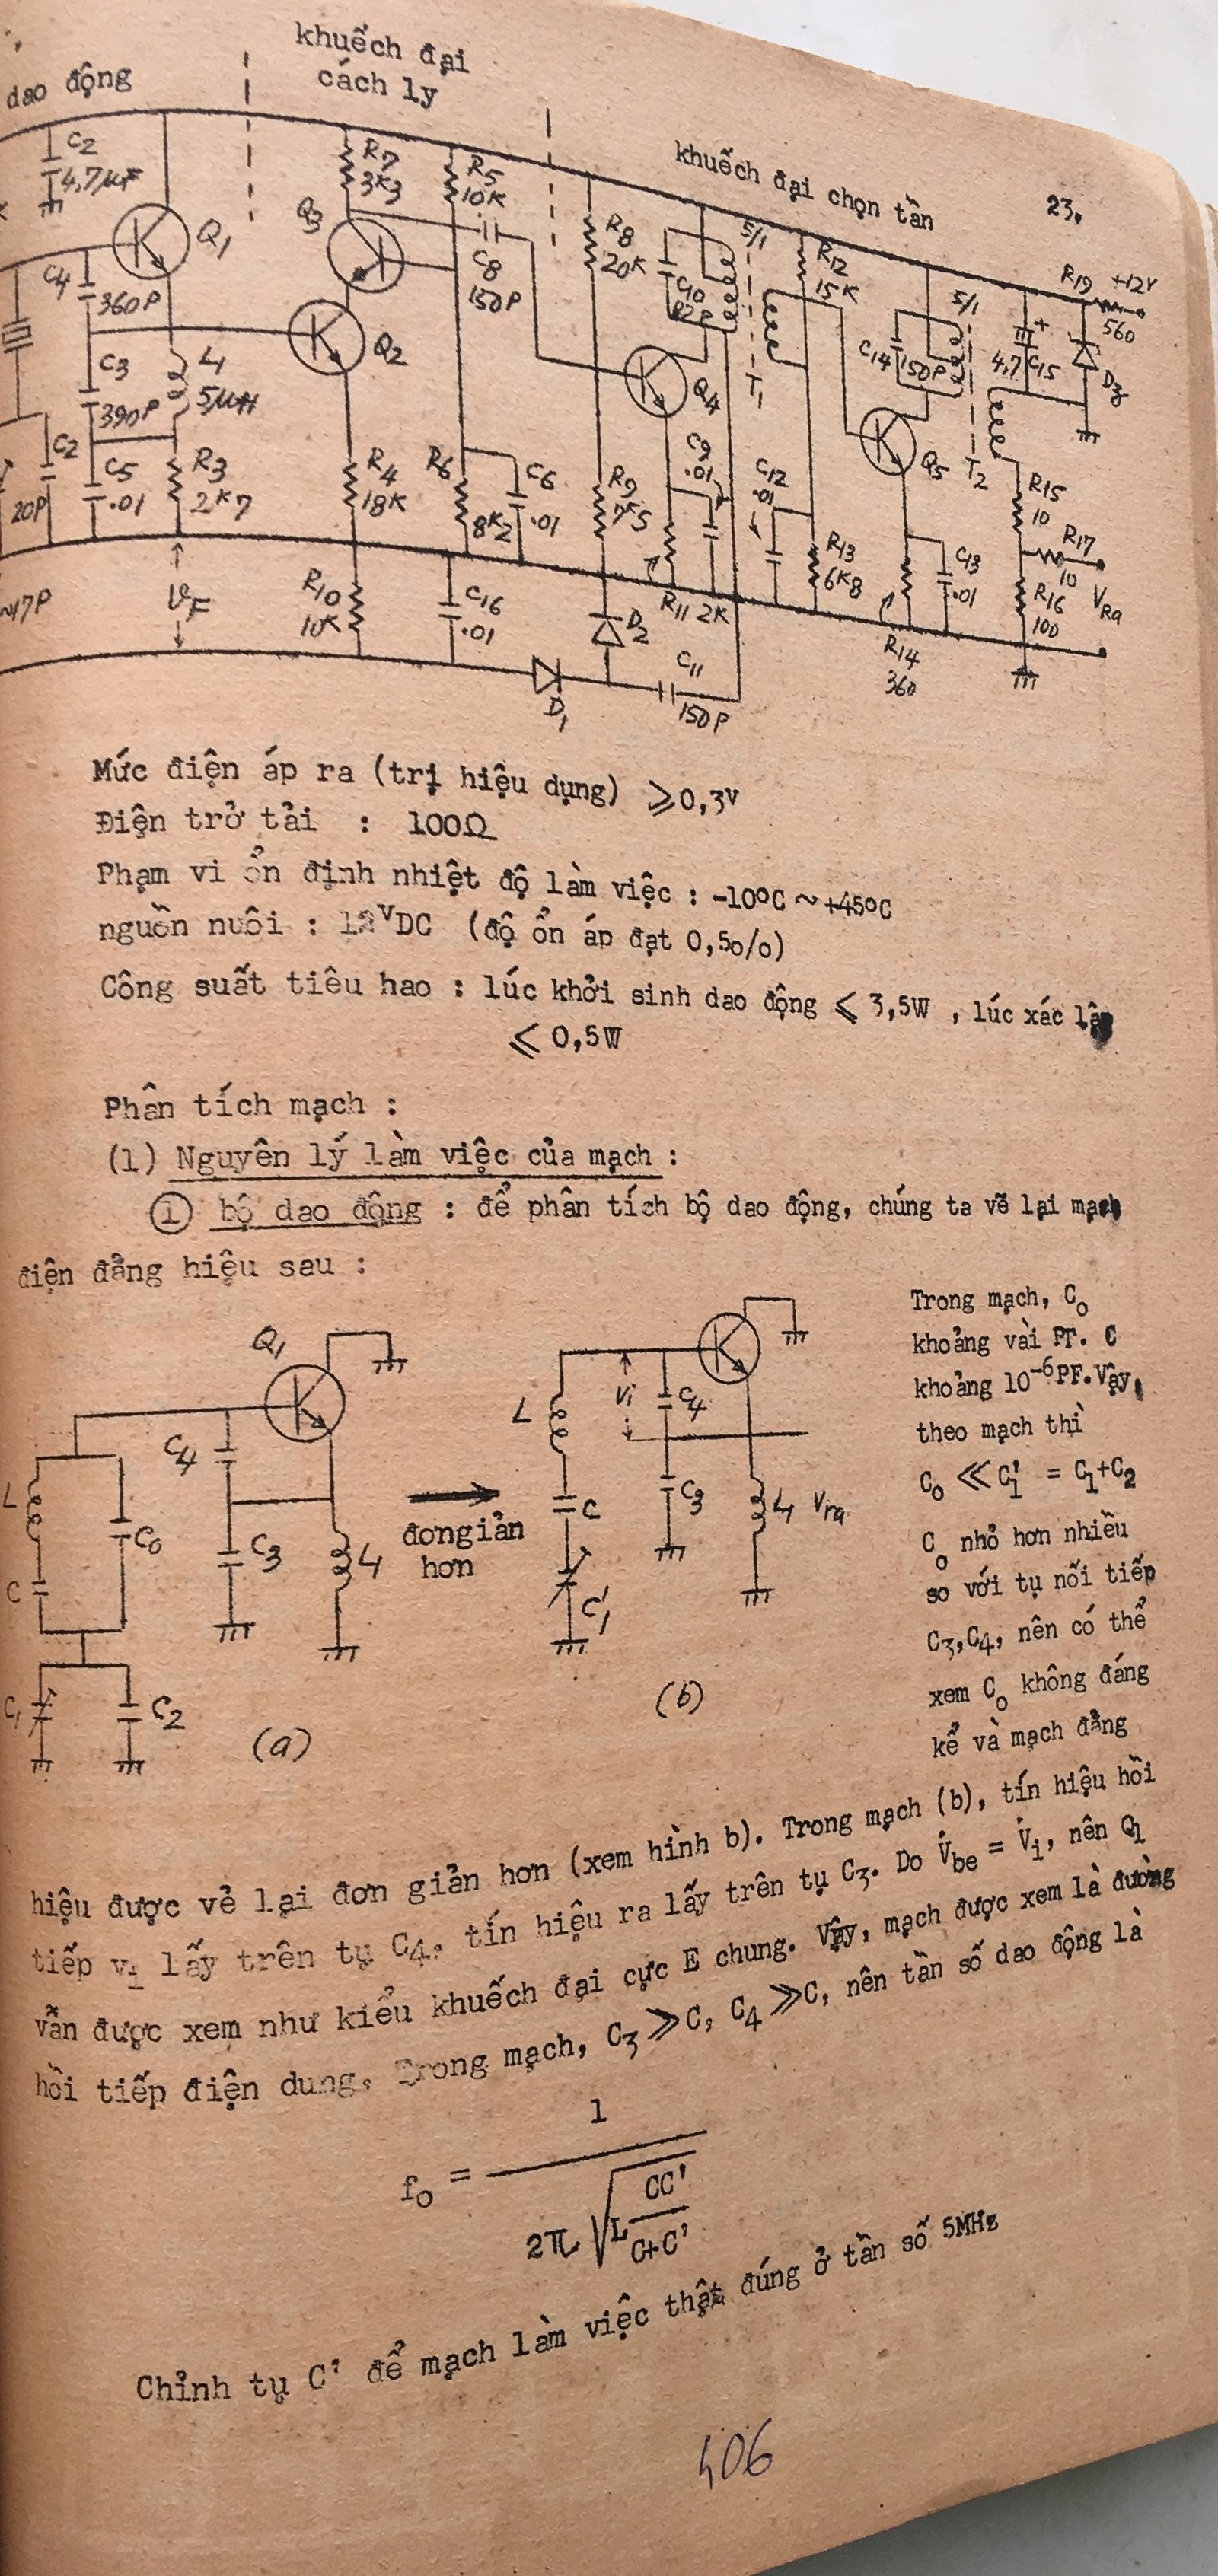 dao động
khuếch đại
cách ly
khuếch đại chọn tần
23.
C2
4,7µF
Q1
C4
360P
C3
390P
L1
5µH
C2
20P
C5
.01
R3
2K7
~17P
VF
R7
3K3
R5
10K
Q3
Q2
C8
150P
R4
18K
R6
8K2
C6
.01
R10
10K
C16
.01
R8
20K
C10
82P
5/1
T1
Q4
C9
.01
R9
7K5
R11 2K
D2
D1
C11
150P
R12
15K
C12
.01
R13
6K8
C14
150P
5/1
T2
Q5
C13
.01
R14
360
R19
+12V
560
+
4,7
C15
Dz
R15
10
R17
10
R16
100
VRa
Mức điện áp ra (trị hiệu dụng) ⩾0,3V
Điện trở tải : 100Ω
Phạm vi ổn định nhiệt độ làm việc : -10°C ~ +45°C
nguồn nuôi : 12VDC (độ ổn áp đạt 0,5o/o)
Công suất tiêu hao : lúc khởi sinh dao động ⩽ 3,5W , lúc xác lập
⩽ 0,5W
Phân tích mạch :
(1) Nguyên lý làm việc của mạch :
① bộ dao động : để phân tích bộ dao động, chúng ta vẽ lại mạch
điện đẳng hiệu sau :
Q1
C4
L
C0
C3
L1
C
C1
C2
(a)
đơn giản
hơn
L
Vi
C4
C3
L1
Vra
C
C'1
(b)
Trong mạch, C0
khoảng vài PF. C
khoảng 10-6PF.Vậy,
theo mạch thì
C0 ≪ C'1 = C1+C2
C0 nhỏ hơn nhiều
so với tụ nối tiếp
C3,C4, nên có thể
xem C0 không đáng
kể và mạch đẳng
hiệu được vẻ lại đơn giản hơn (xem hình b). Trong mạch (b), tín hiệu hồi
tiếp vi lấy trên tụ C4, tín hiệu ra lấy trên tụ C3. Do V̇be = V̇i, nên Q1
vẫn được xem như kiểu khuếch đại cực E chung. Vậy, mạch được xem là đường
hồi tiếp điện dung. Trong mạch, C3 ≫ C, C4 ≫ C, nên tần số dao động là
f0 = 1 / 2π √L CC' / C+C'
Chỉnh tụ C' để mạch làm việc thật đúng ở tần số 5MHz
406